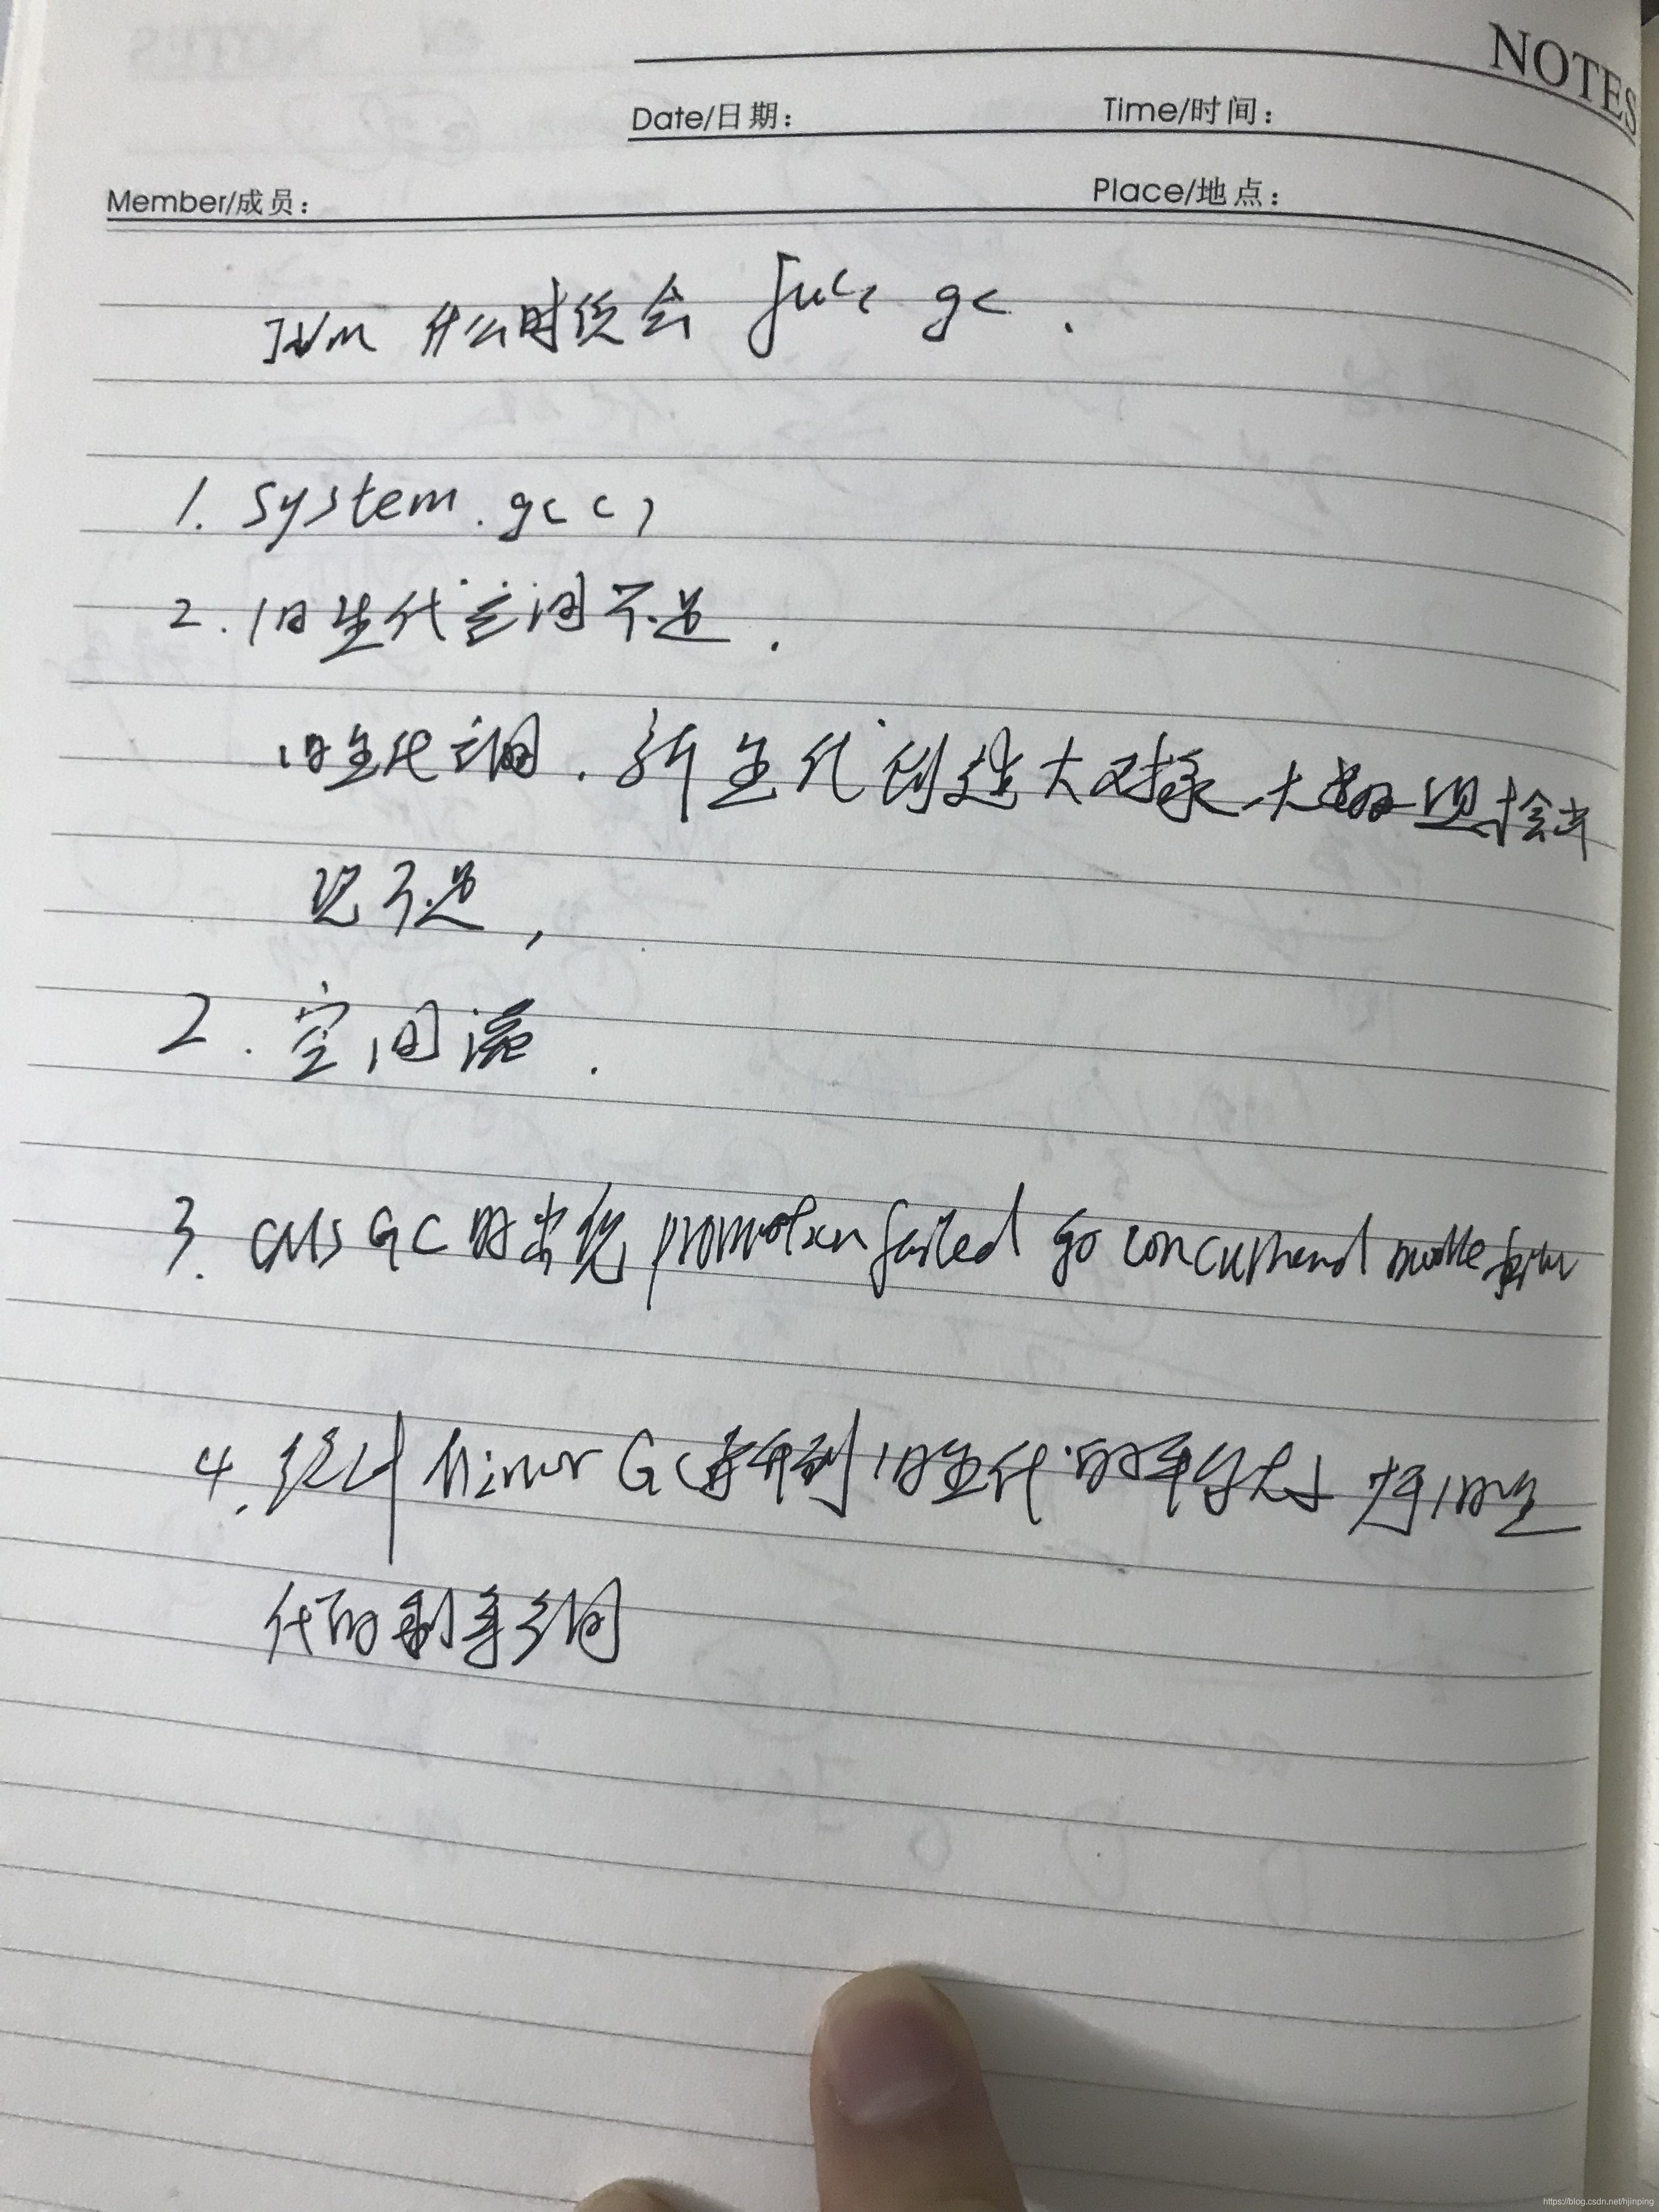 NOTES
Date/日期： Time/时间：
Member/成员： Place/地点：
JVM 什么时候会 full gc .
1. System.gc()
2. 旧生代空间不足 .
旧生代空间 . 新生代创造大对象、大数组时会出
现不足，
2. 空间满 .
3. CMS GC时出现 promotion failed concurrend mode
4. 统计 Minor GC 晋升到旧生代的平均大于 旧生
代的剩余空间
https://blog.csdn.net/hjinping